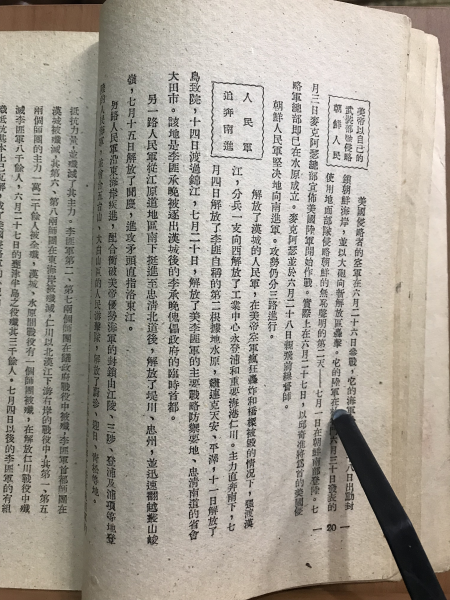 美帝以自己的
武裝部隊侵略
朝鮮人民
美國侵略者的空軍在六月二十六日參戰，它的海軍
八日出動封
鎖朝鮮海岸，並以大砲向新解放區轟擊。它的陸軍在
六月三十日發表的
使用地面部隊侵略朝鮮的無恥聲明的第二天——七月一日在朝鮮南部登陸。七
月三日麥克阿瑟總部宣佈美國陸軍開始作戰。實際上在六月二十七日，以邱奇准將爲首的美國侵
略軍總部即已在水原成立。麥克阿瑟並於六月二十八日親飛前線督師。
朝鮮人民軍堅决地向南進軍。攻勢仍分三路進行。
人民軍
追奔南進
解放了漢城的人民軍，在美帝空軍瘋狂轟炸和橋樑被毀的情況下，强渡漢
江，分兵一支向西解放了工業中心永登浦和重要海港仁川。主力直奔南下，七
月四日解放了李匪自稱的第二根據地水原，繼連克天安、平澤，十一日解放了
鳥致院，十四日渡過錦江，七月二十日，解放了美李匪軍的主要戰略防禦要地、忠清南道的省會
大田市。該地是李匪承晚被逐出漢城後的李承晚傀儡政府的臨時首都。
另一路人民軍從江原道地區南下挺進至忠清北道後，解放了堤川、忠州，並迅速翻越叢山峻
嶺，七月十五日解放了聞慶，進攻矛頭直指洛東江。
路人民軍沿東海岸疾進，配合衝破美帝優勢海軍的封鎖由江陵、三陟、登浦及浦項等地登
抵抗力量
殲滅，其主力。李匪軍第二、第七兩個師團在議政府戰役中被殲，李匪軍首都師團在
漢城被殲滅，其第六、第八兩師團在東海岸被殲滅，仁川以北漢江下游右岸的戰役中，其第一、第五
兩個師團的主力一萬二千餘人被全殲，漢城、水原間戰役有一個師團被殲，在解放仁川戰役中殲
滅李匪軍八千餘人，六月二十七日的甕津半島之役殲其三千餘人。七月四日以後的李匪軍的有組
20